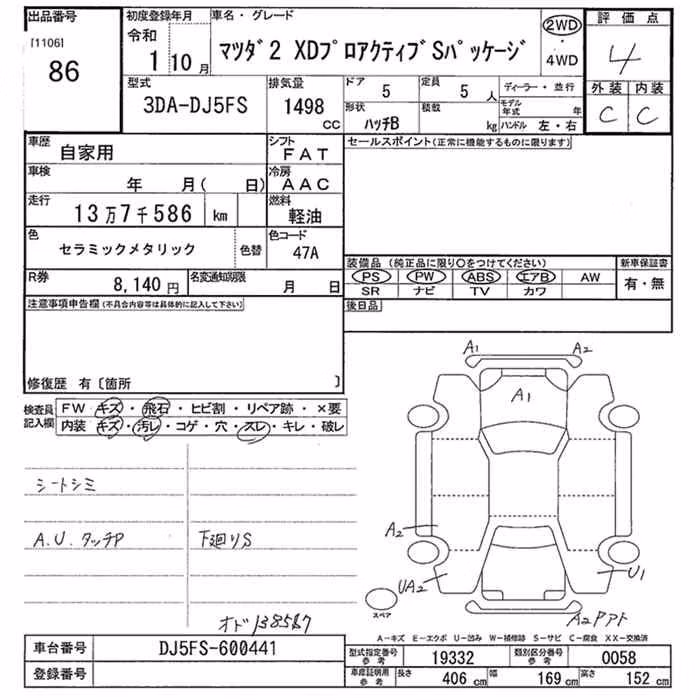 出品番号 初度登録年月 車名・グレード 評価点
[1106] 86 令和 1 10月 マツダ2 XDプロアクティブSパッケージ 2WD・4WD 4
型式 排気量 ドア 5 定員 5人 ディーラー・並行 外装 内装
3DA-DJ5FS 1498 CC 形状 ハッチB 積載 kg モデル年式 年 ハンドル 左・右 C C
車歴 自家用 シフト FAT セールスポイント(正常に機能するものに限ります)
車検 年 月( 日) 冷房 AAC
走行 13万7千586 km 燃料 軽油
色 セラミックメタリック 色替 色コード 47A
装備品(純正品に限り○をつけてください) 新車保証書
R券 8,140円 名変通知期限 月 日 PS PW ABS エアB AW 有・無
SR ナビ TV カワ
注意事項申告欄(不具合内容等は具体的に記入して下さい) 後日品
修復歴 有〔箇所 〕
検査員記入欄 FW キズ・飛石・ヒビ割・リペア跡・×要
内装 キズ・汚レ・コゲ・穴・スレ・キレ・破レ
A1 A2
A1
シートシミ
A.U.タッチP 下廻りS A2
UA2 U1
スペア
オド138587 A2Pアト
A-キズ E-エクボ U-凹み W-補修跡 S-サビ C-腐食 XX-交換済
車台番号 DJ5FS-600441 型式指定番号参考 19332 類別区分番号参考 0058
登録番号 車庫証明用参考 長さ 406 cm 幅 169 cm 高さ 152 cm